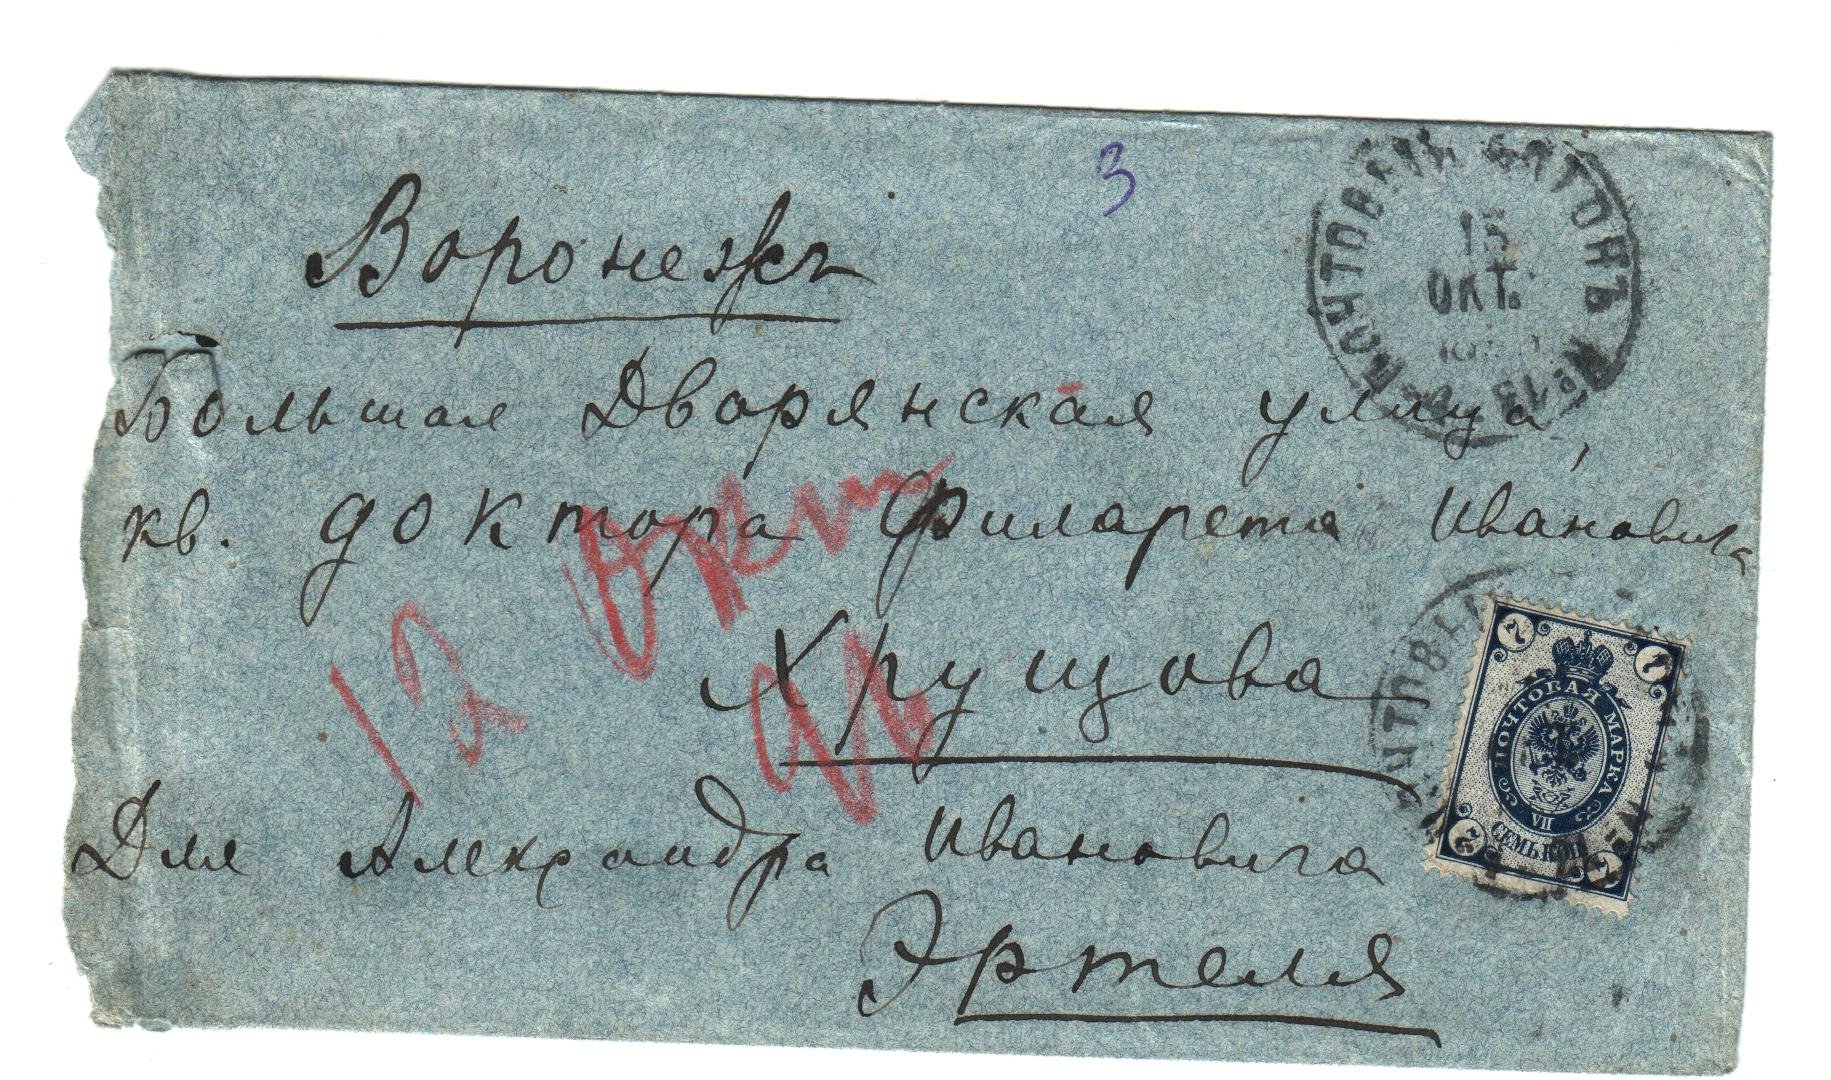 3
ПОЧТОВЫЙ ВАГОНЪ № 13
15
ОКТ.
Воронежъ
Большая Дворянская улица,
кв. доктора Филарета Ивановича
Хрущова
12 Окт
Для Александра Ивановича
Эртеля
7 7
ПОЧТОВАЯ МАРКА
VII
СЕМЬ КОП.
7 7